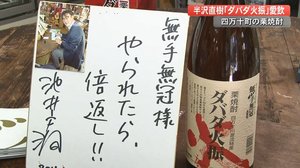 半沢直樹「ダバダ火振」愛飲
四万十町の栗焼酎
無手無冠様
やられたら、
倍返し!!
池井戸潤
栗焼酎
ダバダ火振